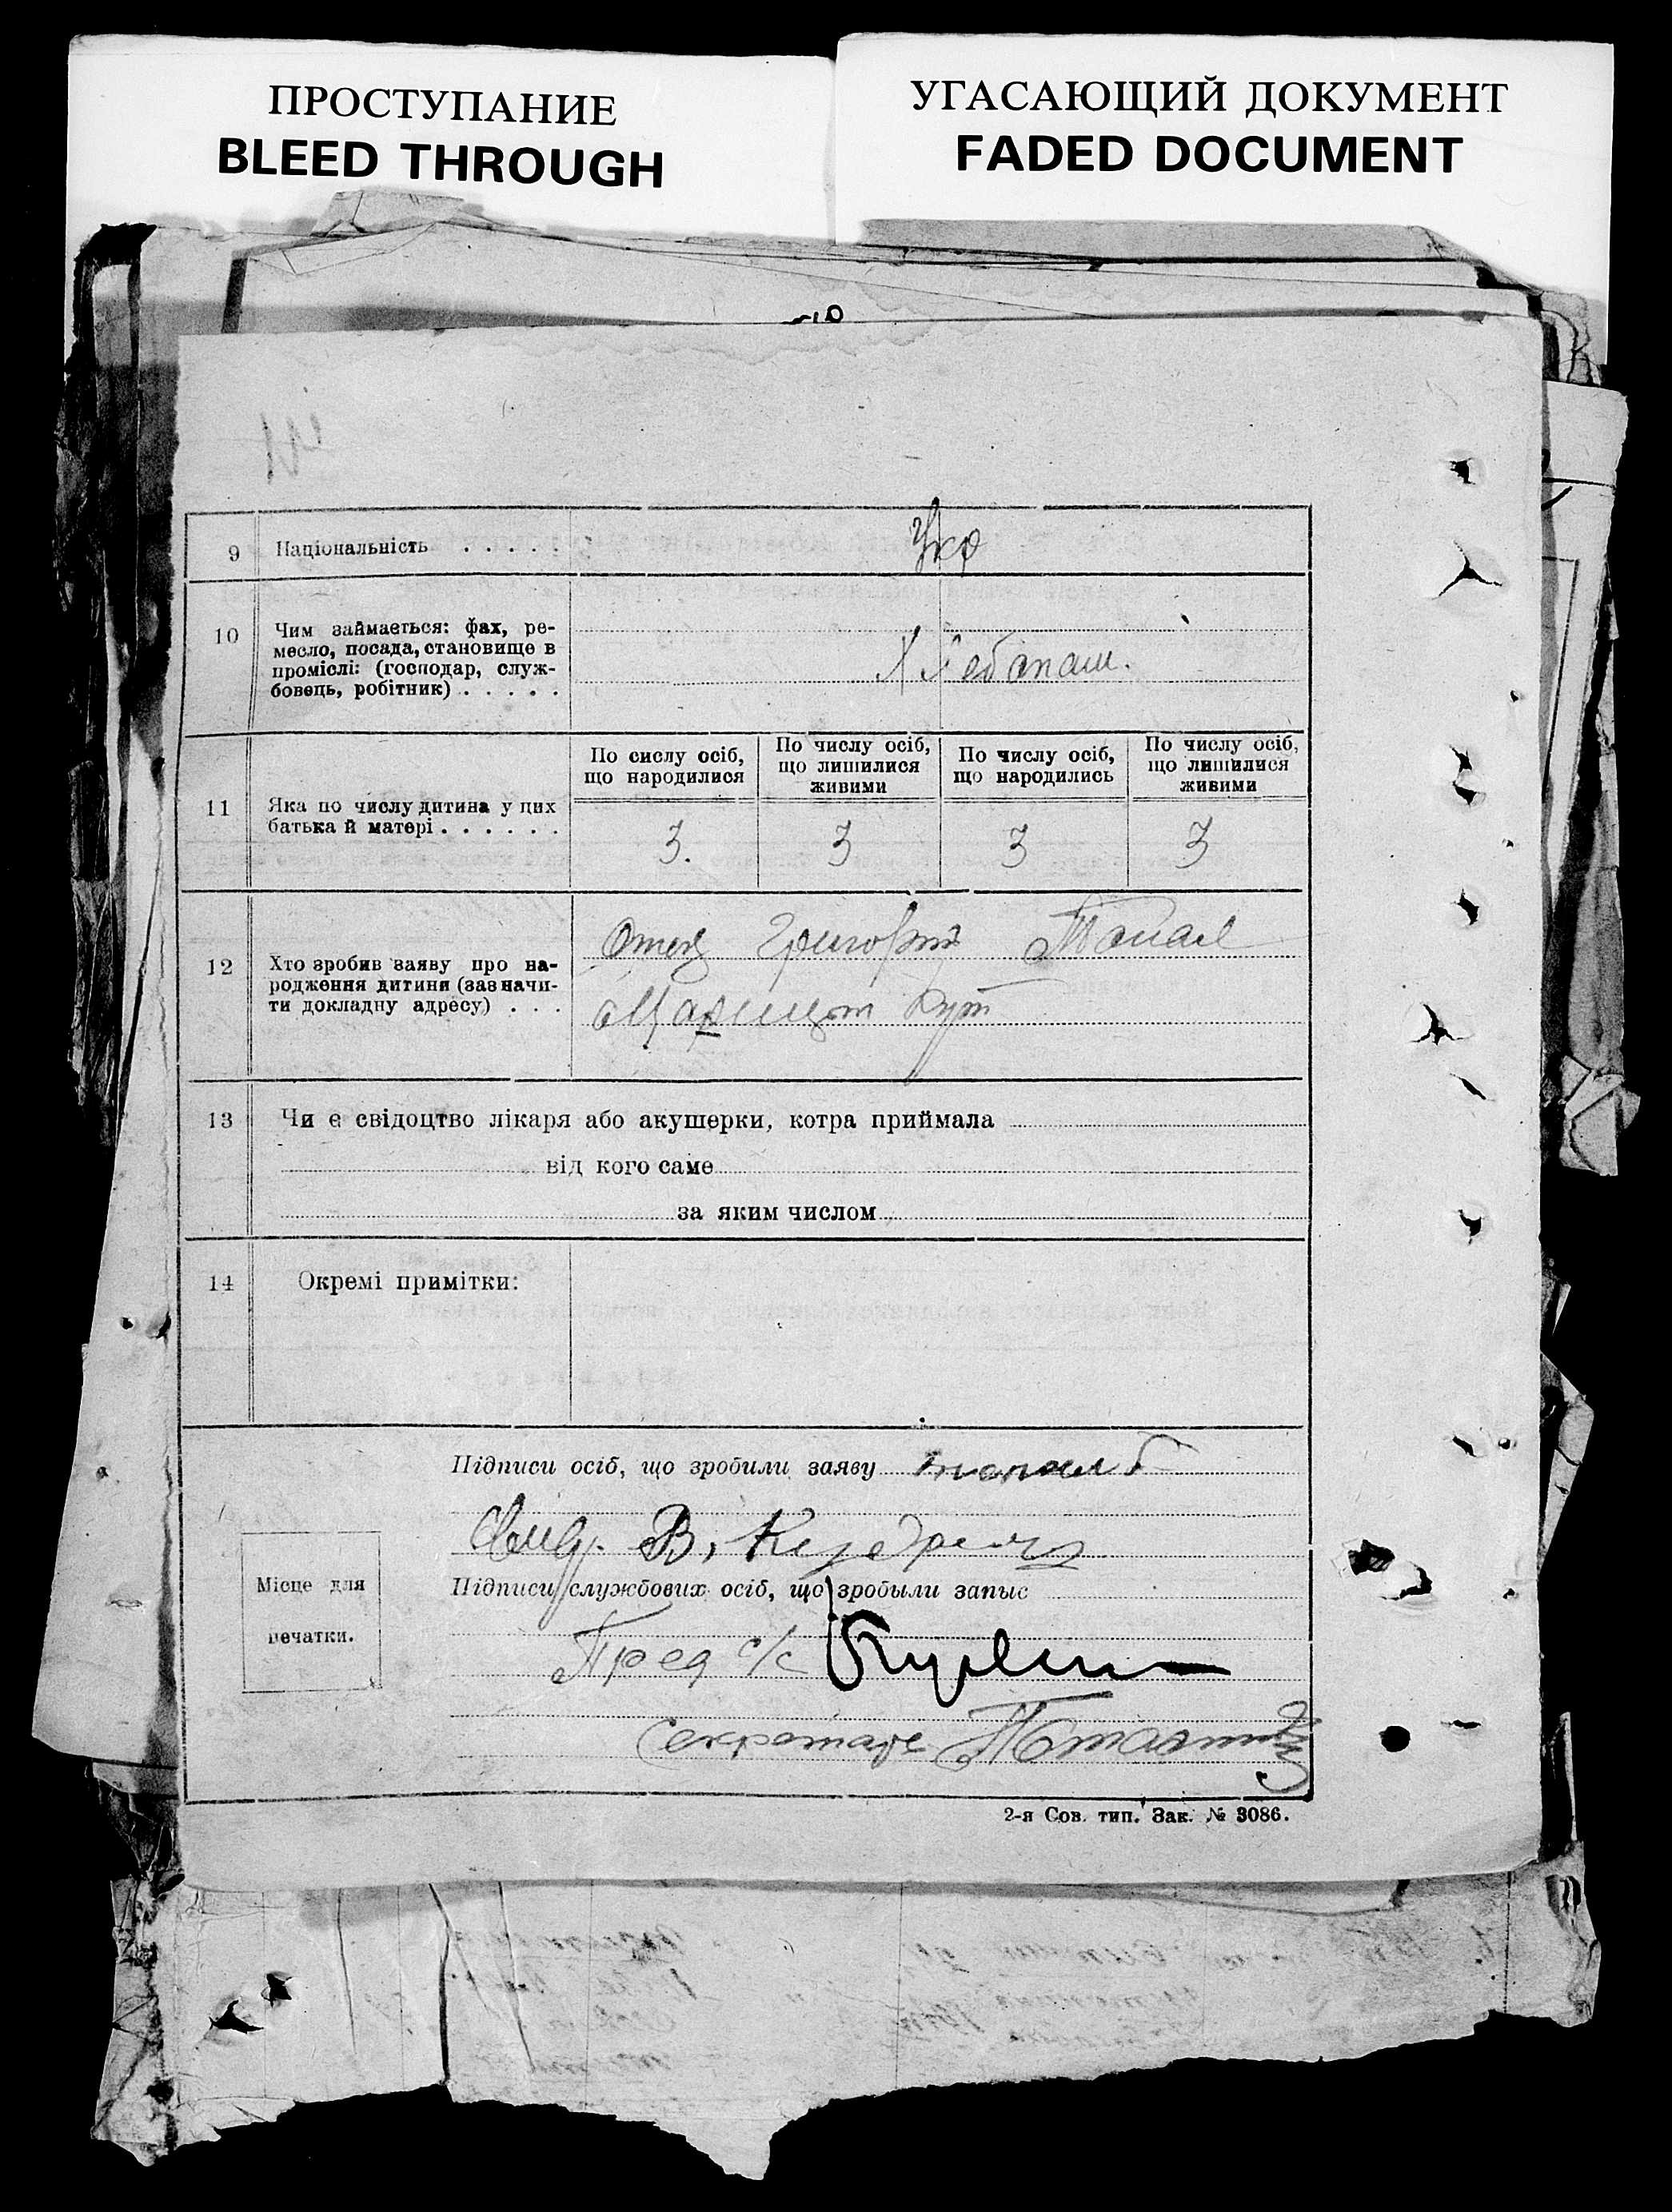 ПРОСТУПАНИЕ
BLEED THROUGH
УГАСАЮЩИЙ ДОКУМЕНТ
FADED DOCUMENT
9 Національність . . . . . Укр
10 Чим займається: фах, ре-
месло, посада, становище в
проміслі: (господар, служ-
бовець, робітник) . . . . .
Хлебапаш.
По сислу осіб,
що народилися
По числу осіб,
що лишилися
живими
По числу осіб,
що народились
По числу осіб,
що лишилися
живими
11 Яка по числу дитина у цих
батька й матері . . . . . .
3. 3 3 3
12 Хто зробив заяву про на-
родження дитини (зазначи-
ти докладну адресу) . . .
Отец Григорій Топал
Кут
13 Чи є свідоцтво лікаря або акушерки, котра приймала
від кого саме
за яким числом
14 Окремі примітки:
Підписи осіб, що зробили заяву топал Г
Свид. В.
Підписи службових осіб, що зробыли запыс
Місце для
печатки.
Пред с/с
Секретарь
2-я Сов. тип. Зак. № 3086.